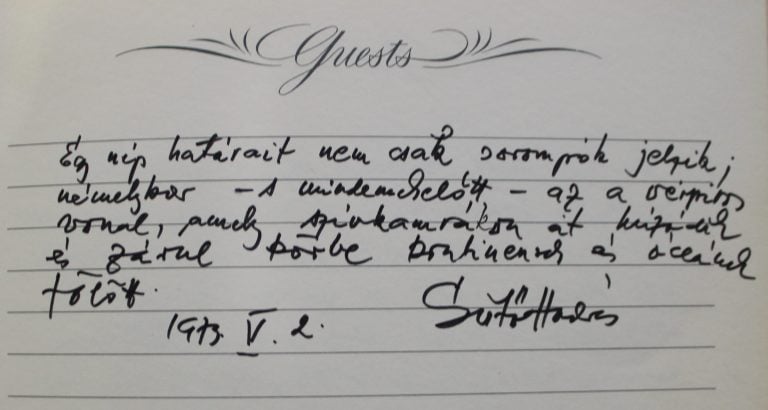 Guests
Egy nép határait nem csak sorompók jelzik;
némelykor – s mindenekelőtt – az a vérpiros
vonal, amely szívkamrákon át húzódik
és zárul körbe kontinensek és óceánok
fölött.
1973. V. 2. Sütő András